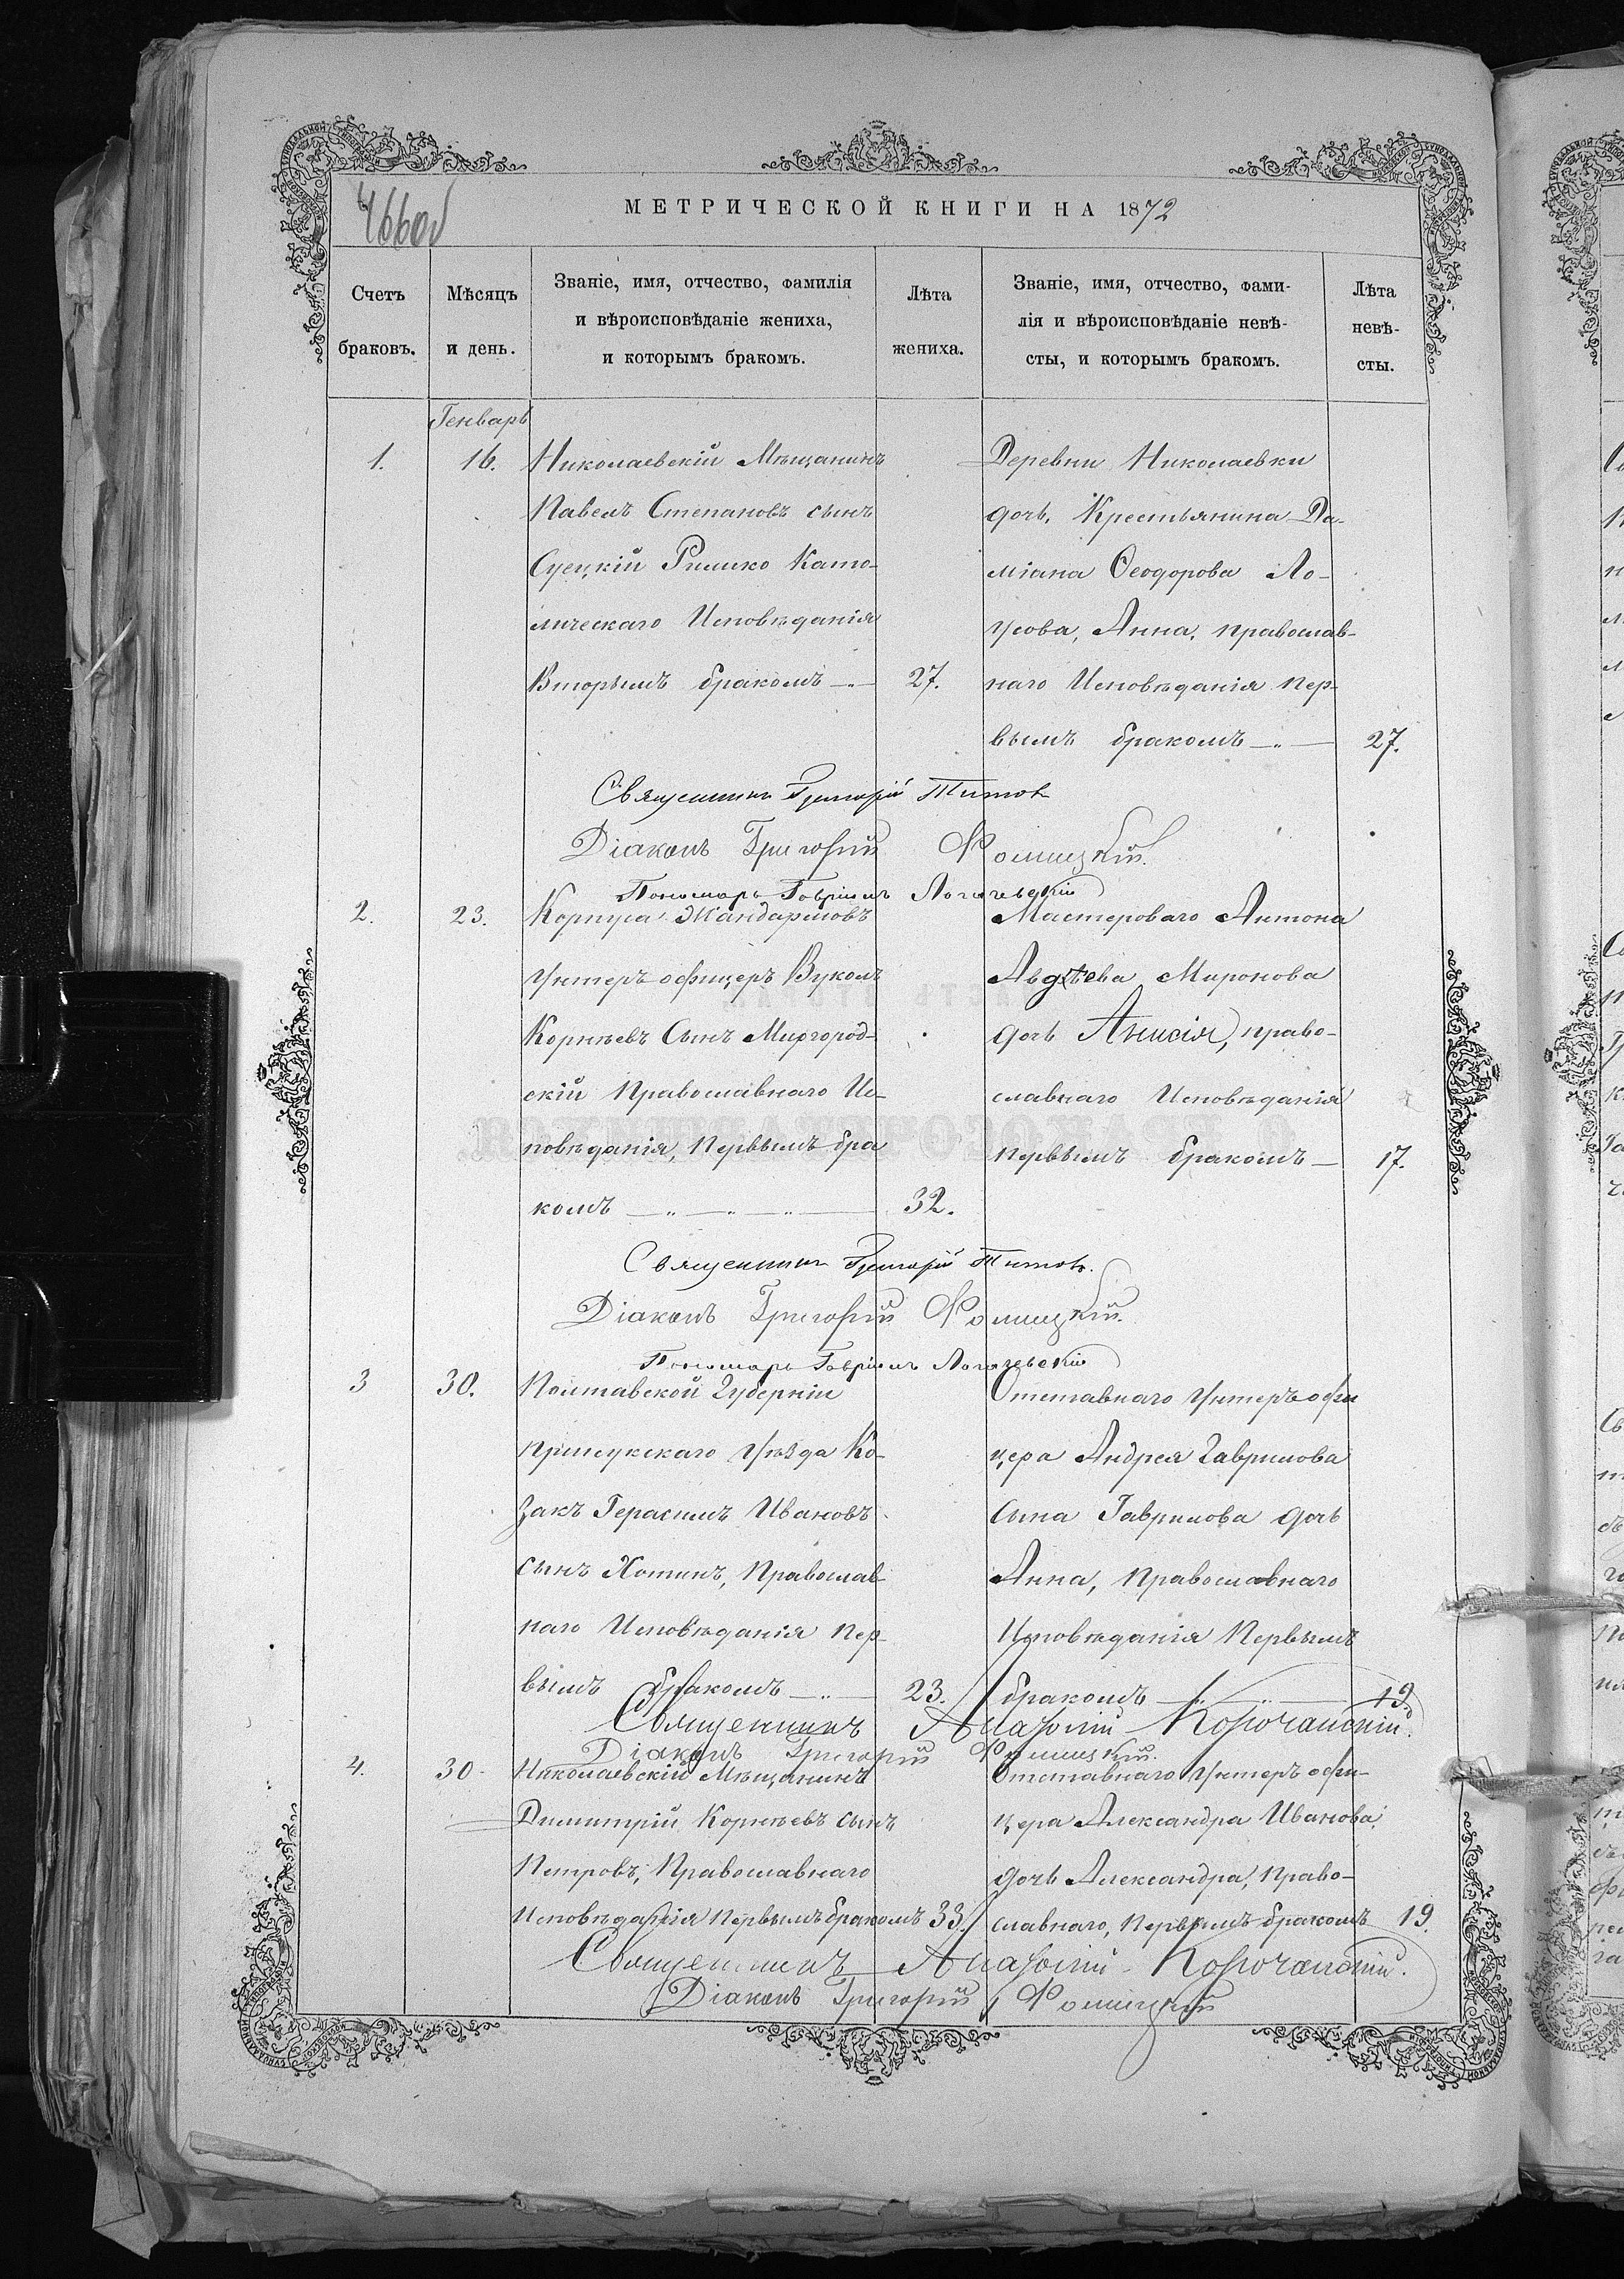 466об
МЕТРИЧЕСКОЙ КНИГИ НА 1872
Счетъ браковъ.
Мѣсяцъ и день.
Званіе, имя, отчество, фамилія
и вѣроисповѣданіе жениха,
и которымъ бракомъ.
Лѣта жениха.
Званіе, имя, отчество, фами-
лія и вѣроисповѣданіе невѣ-
сты, и которымъ бракомъ.
Лѣта невѣ-
сты.
Генварь
1. 16. Николаевскій Мѣщанинъ
Павелъ Степановъ сынъ
Суецкій Римско Като-
лическаго Исповѣданія
Вторымъ бракомъ 27.
Деревни Николаевки
дочь, Крестьянина Да-
міана Ѳеодорова Ло-
гусова, Анна, православ-
наго Исповѣданія пер-
вымъ бракомъ 27.
Священникъ Григорій Титовъ
Діаконъ Григорій Фомицкій.
Пономарь Гавріилъ
2. 23. Корпуса Жандармовъ
Унтеръ офицеръ Вуколъ
Корнѣевъ Сынъ Миргород-
скій Православнаго Ис-
повѣданія, Первымъ бра
комъ 32.
Мастероваго Антона
Авдѣева Миронова
дочь Анисія, право-
славнаго Исповѣданія
первымъ бракомъ 17.
Священникъ Григорій Титовъ.
Діаконъ Григорій Фомицкій.
Пономарь Гавріилъ
3 30. Полтавской Губерніи
прилукскаго Уѣзда Ко-
закъ Герасимъ Ивановъ
сынъ Хоминъ, Православ-
наго Исповѣданія пер-
вымъ бракомъ 23.
Отставнаго Унтеръ офи
цера Андрея Гаврилова
сына Гаврилова дочь
Анна, Православнаго
Исповѣданія Первымъ
бракомъ 19
Священникъ Анатолій Корочанскій.
Діаконъ Григорій Фомицкій.
4. 30. Николаевскій Мѣщанинъ
Димитрій Корнѣевъ сынъ
Петровъ, Православнаго
Исповѣданія Первымъ бракомъ 33.
Отставнаго Унтеръ офи-
цера Александра Иванова
дочь Александра, Право-
славнаго, Первымъ бракомъ 19.
Священникъ Анатолій Корочанскій.
Діаконъ Григорій Фомицкій